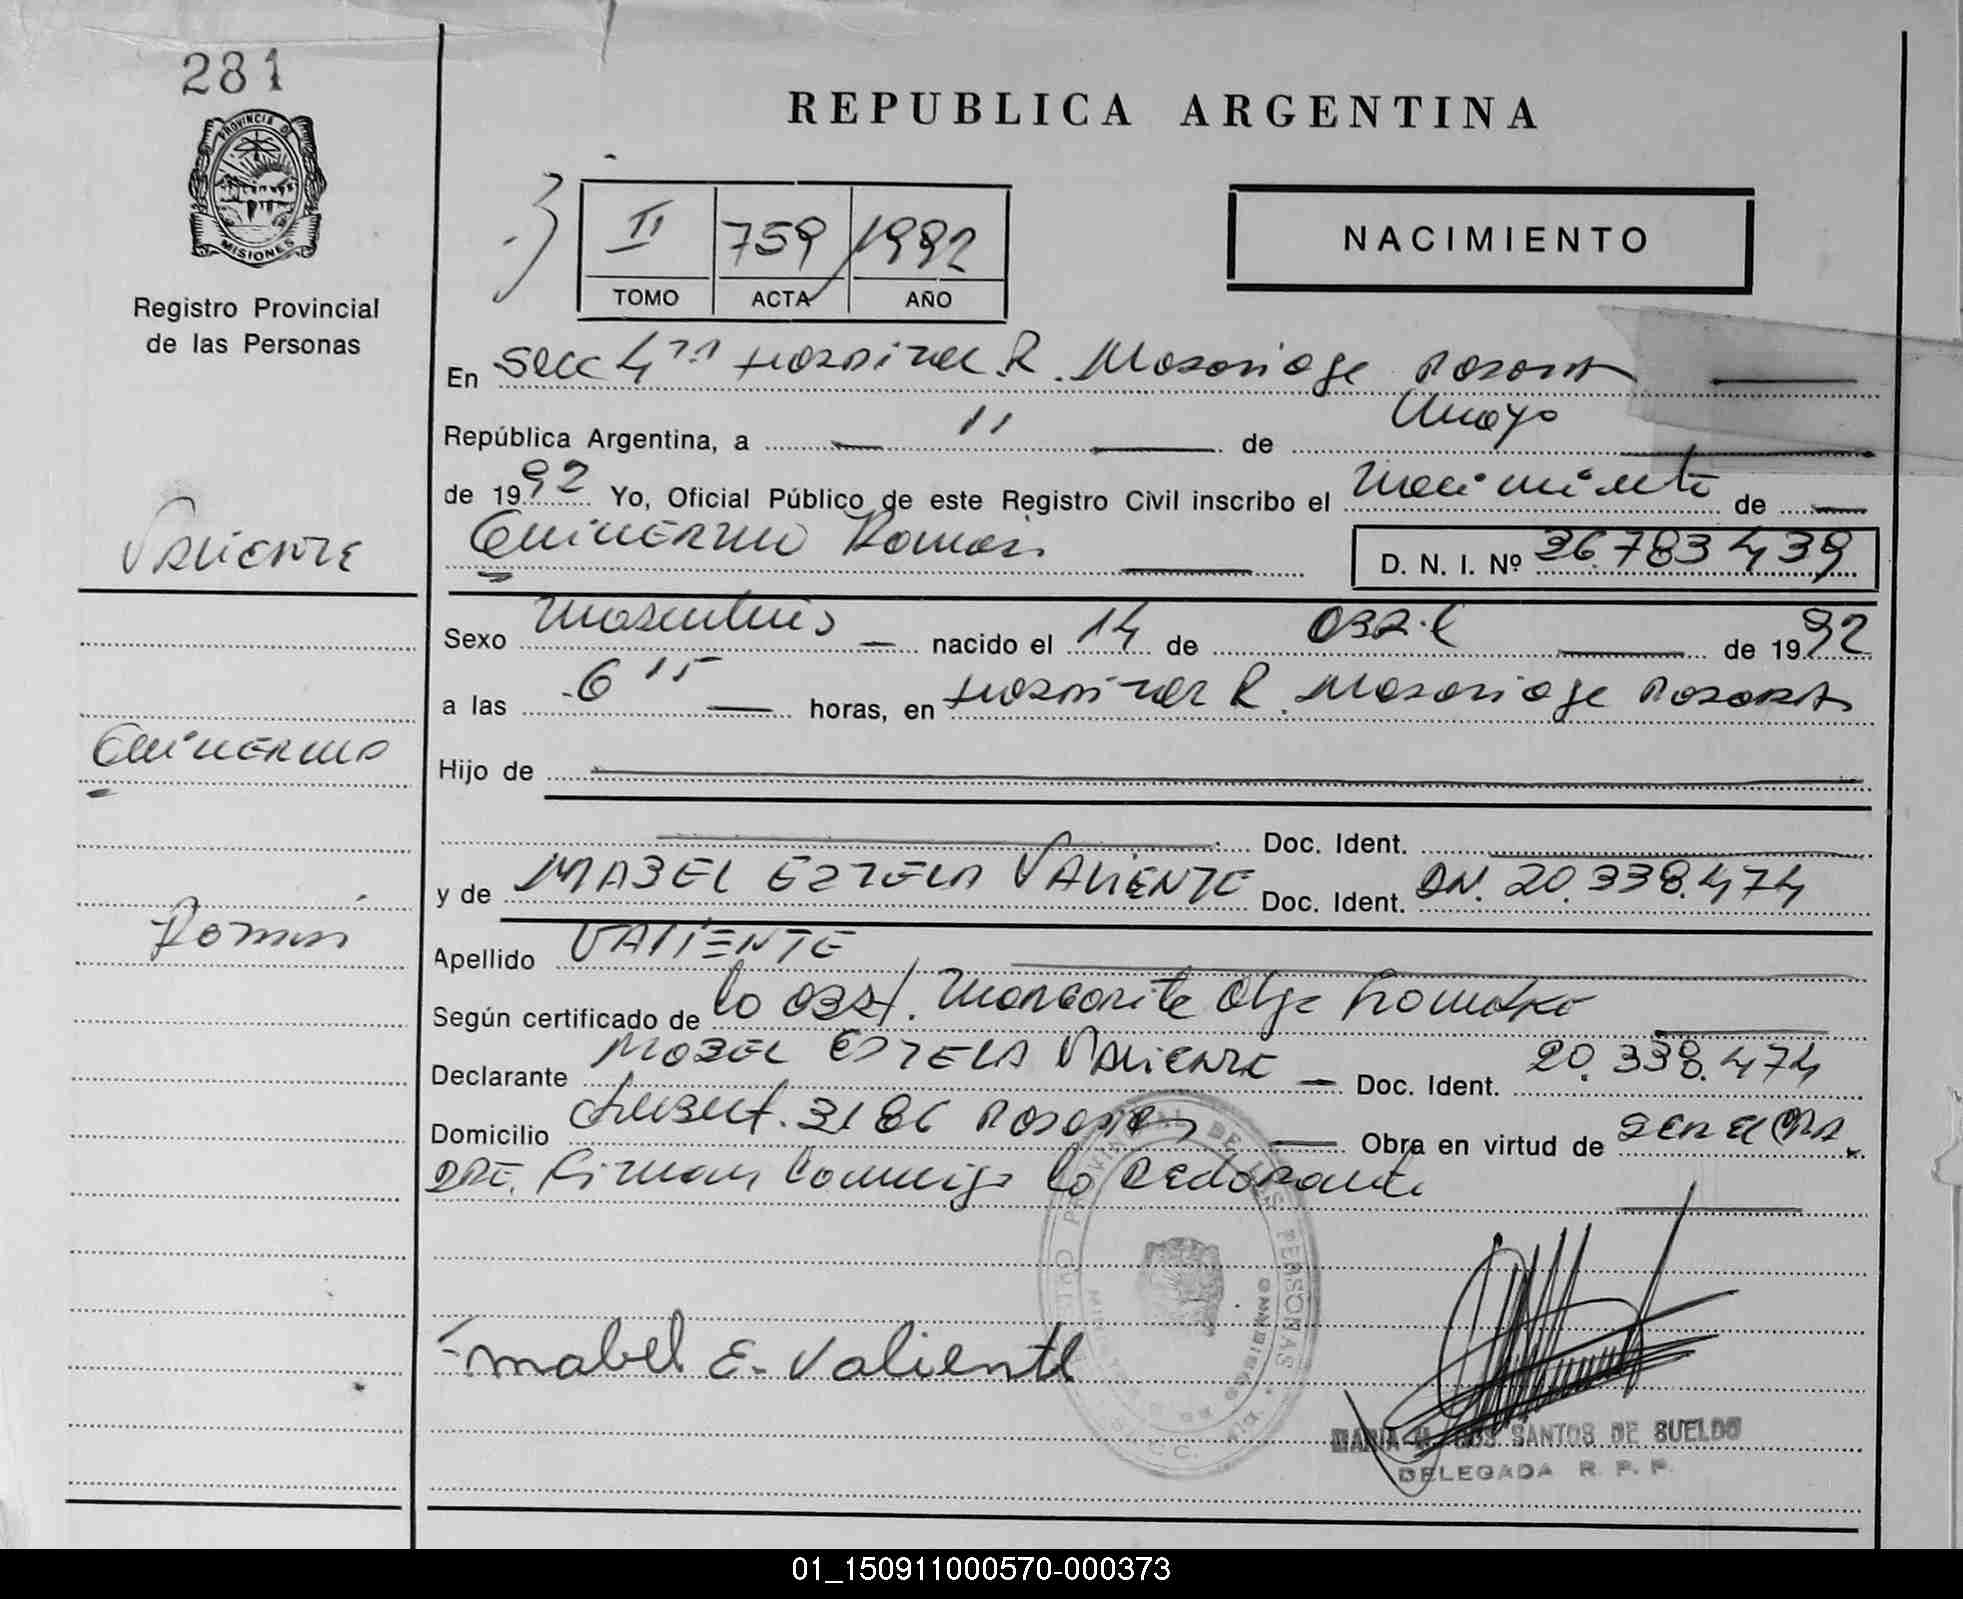 281
REPUBLICA ARGENTINA
PROVINCIA DE
MISIONES
Registro Provincial
de las Personas
II 759 1992
TOMO ACTA AÑO
NACIMIENTO
En Secc 4ta Hospital R. Madariaga Posadas
República Argentina, a 11 de Mayo
de 1992 Yo, Oficial Público de este Registro Civil inscribo el Nacimiento de
Guillermo Roman
D. N. I. Nº 36.783.439
VALIENTE
Sexo Masculino nacido el 14 de abril de 1992
a las 6 15 horas, en Hospital R. Madariaga Posadas
Guillermo
Hijo de
Doc. Ident.
y de MABEL ESTELA VALIENTE Doc. Ident. DN. 20.338.474
Roman
Apellido VALIENTE
Según certificado de la Obst. Margarita Olga
Declarante MABEL ESTELA VALIENTE Doc. Ident. 20.338.474
Domicilio 3186 Posadas Obra en virtud de
Firman conmigo la
Mabel E. Valiente
MARIA DOS SANTOS DE SUELDO
DELEGADA R. P. P.
01_150911000570-000373